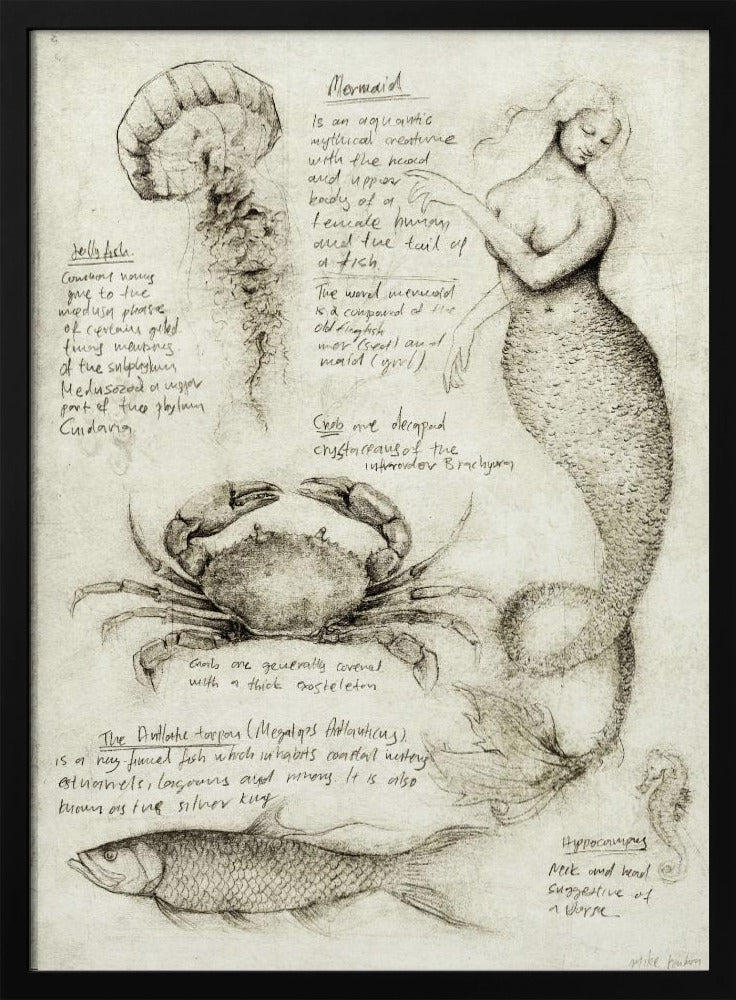 Mermaid
Is an aquantic
mythical creature
with the head
and upper
body of a
female human
and the tail of
a fish.
The word mermaid
is a compound of the
old english
mer (sea) and
maid (girl)
Jelly fish.
Common name
give to the
medusa phase
of certain
members
of the subphylum
Medusozoa a major
part of the phylum
Cnidaria
Crab are decapod
crystaceans of the
infraorder Brachyura
Crabs are generally covered
with a thick exoskeleton
The Atlantic tarpon (Megalops Atlanticus).
is a ray finned fish which inhabits coastal waters
estuaries, lagoons and rivers. It is also
known as the silver king
Hippocampus
Neck and head
suggestive of
a horse
Mike